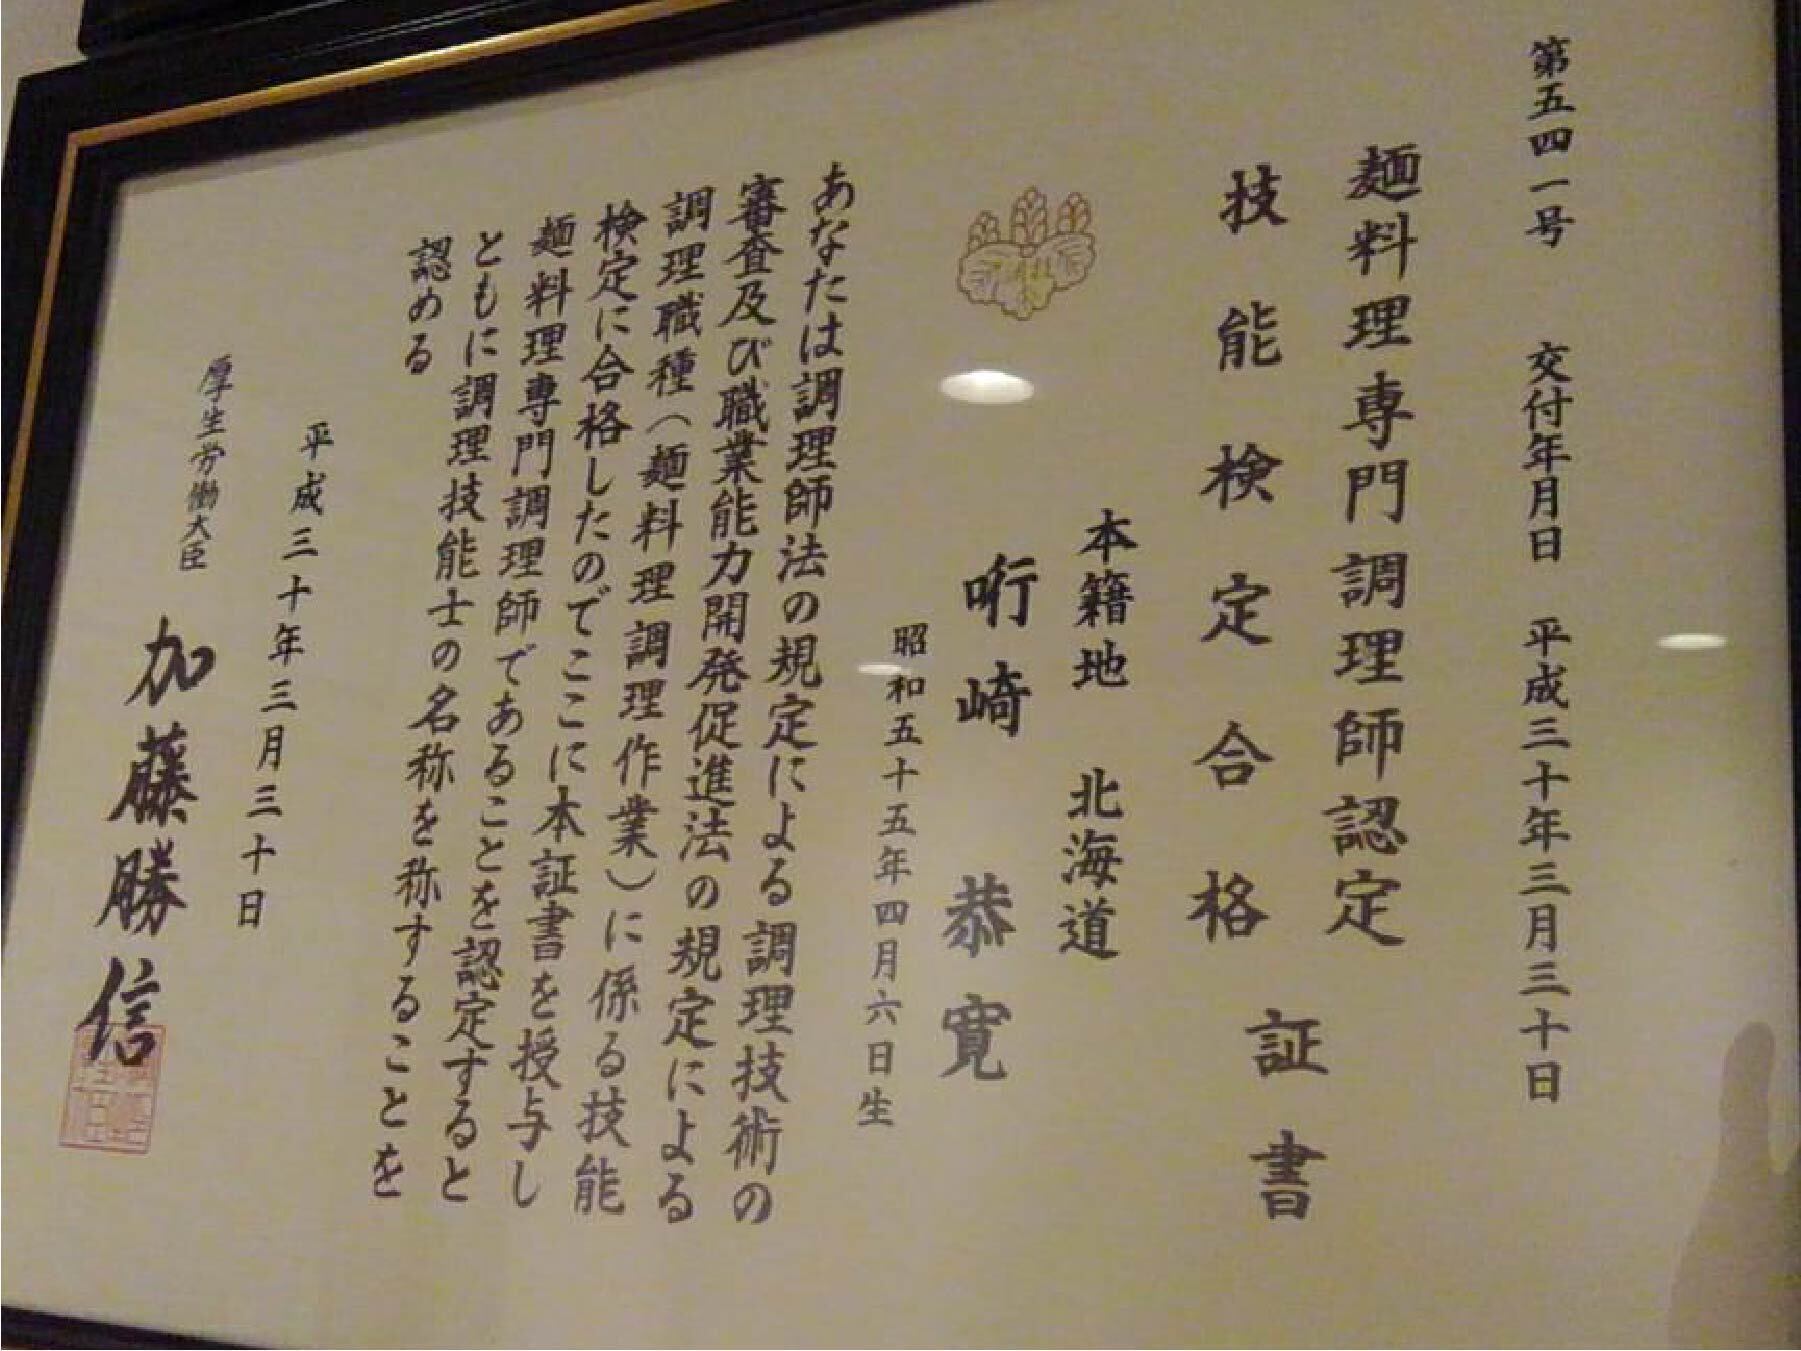 第五四一号　交付年月日　平成三十年三月三十日
麺料理専門調理師認定
技能検定合格証書
本籍地　北海道
哘崎　恭寛
昭和五十五年四月六日生
あなたは調理師法の規定による調理技術の
審査及び職業能力開発促進法の規定による
調理職種（麺料理調理作業）に係る技能
検定に合格したのでここに本証書を授与し
麺料理専門調理師であることを認定すると
ともに調理技能士の名称を称することを
認める
平成三十年三月三十日
厚生労働大臣　加藤勝信